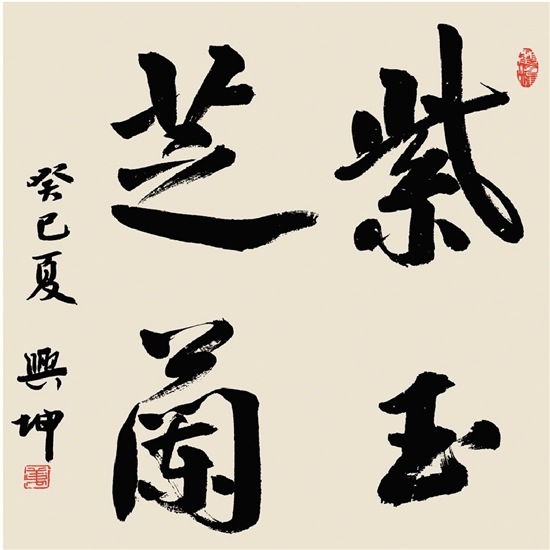 紫玉
芝蘭
癸巳夏 興坤